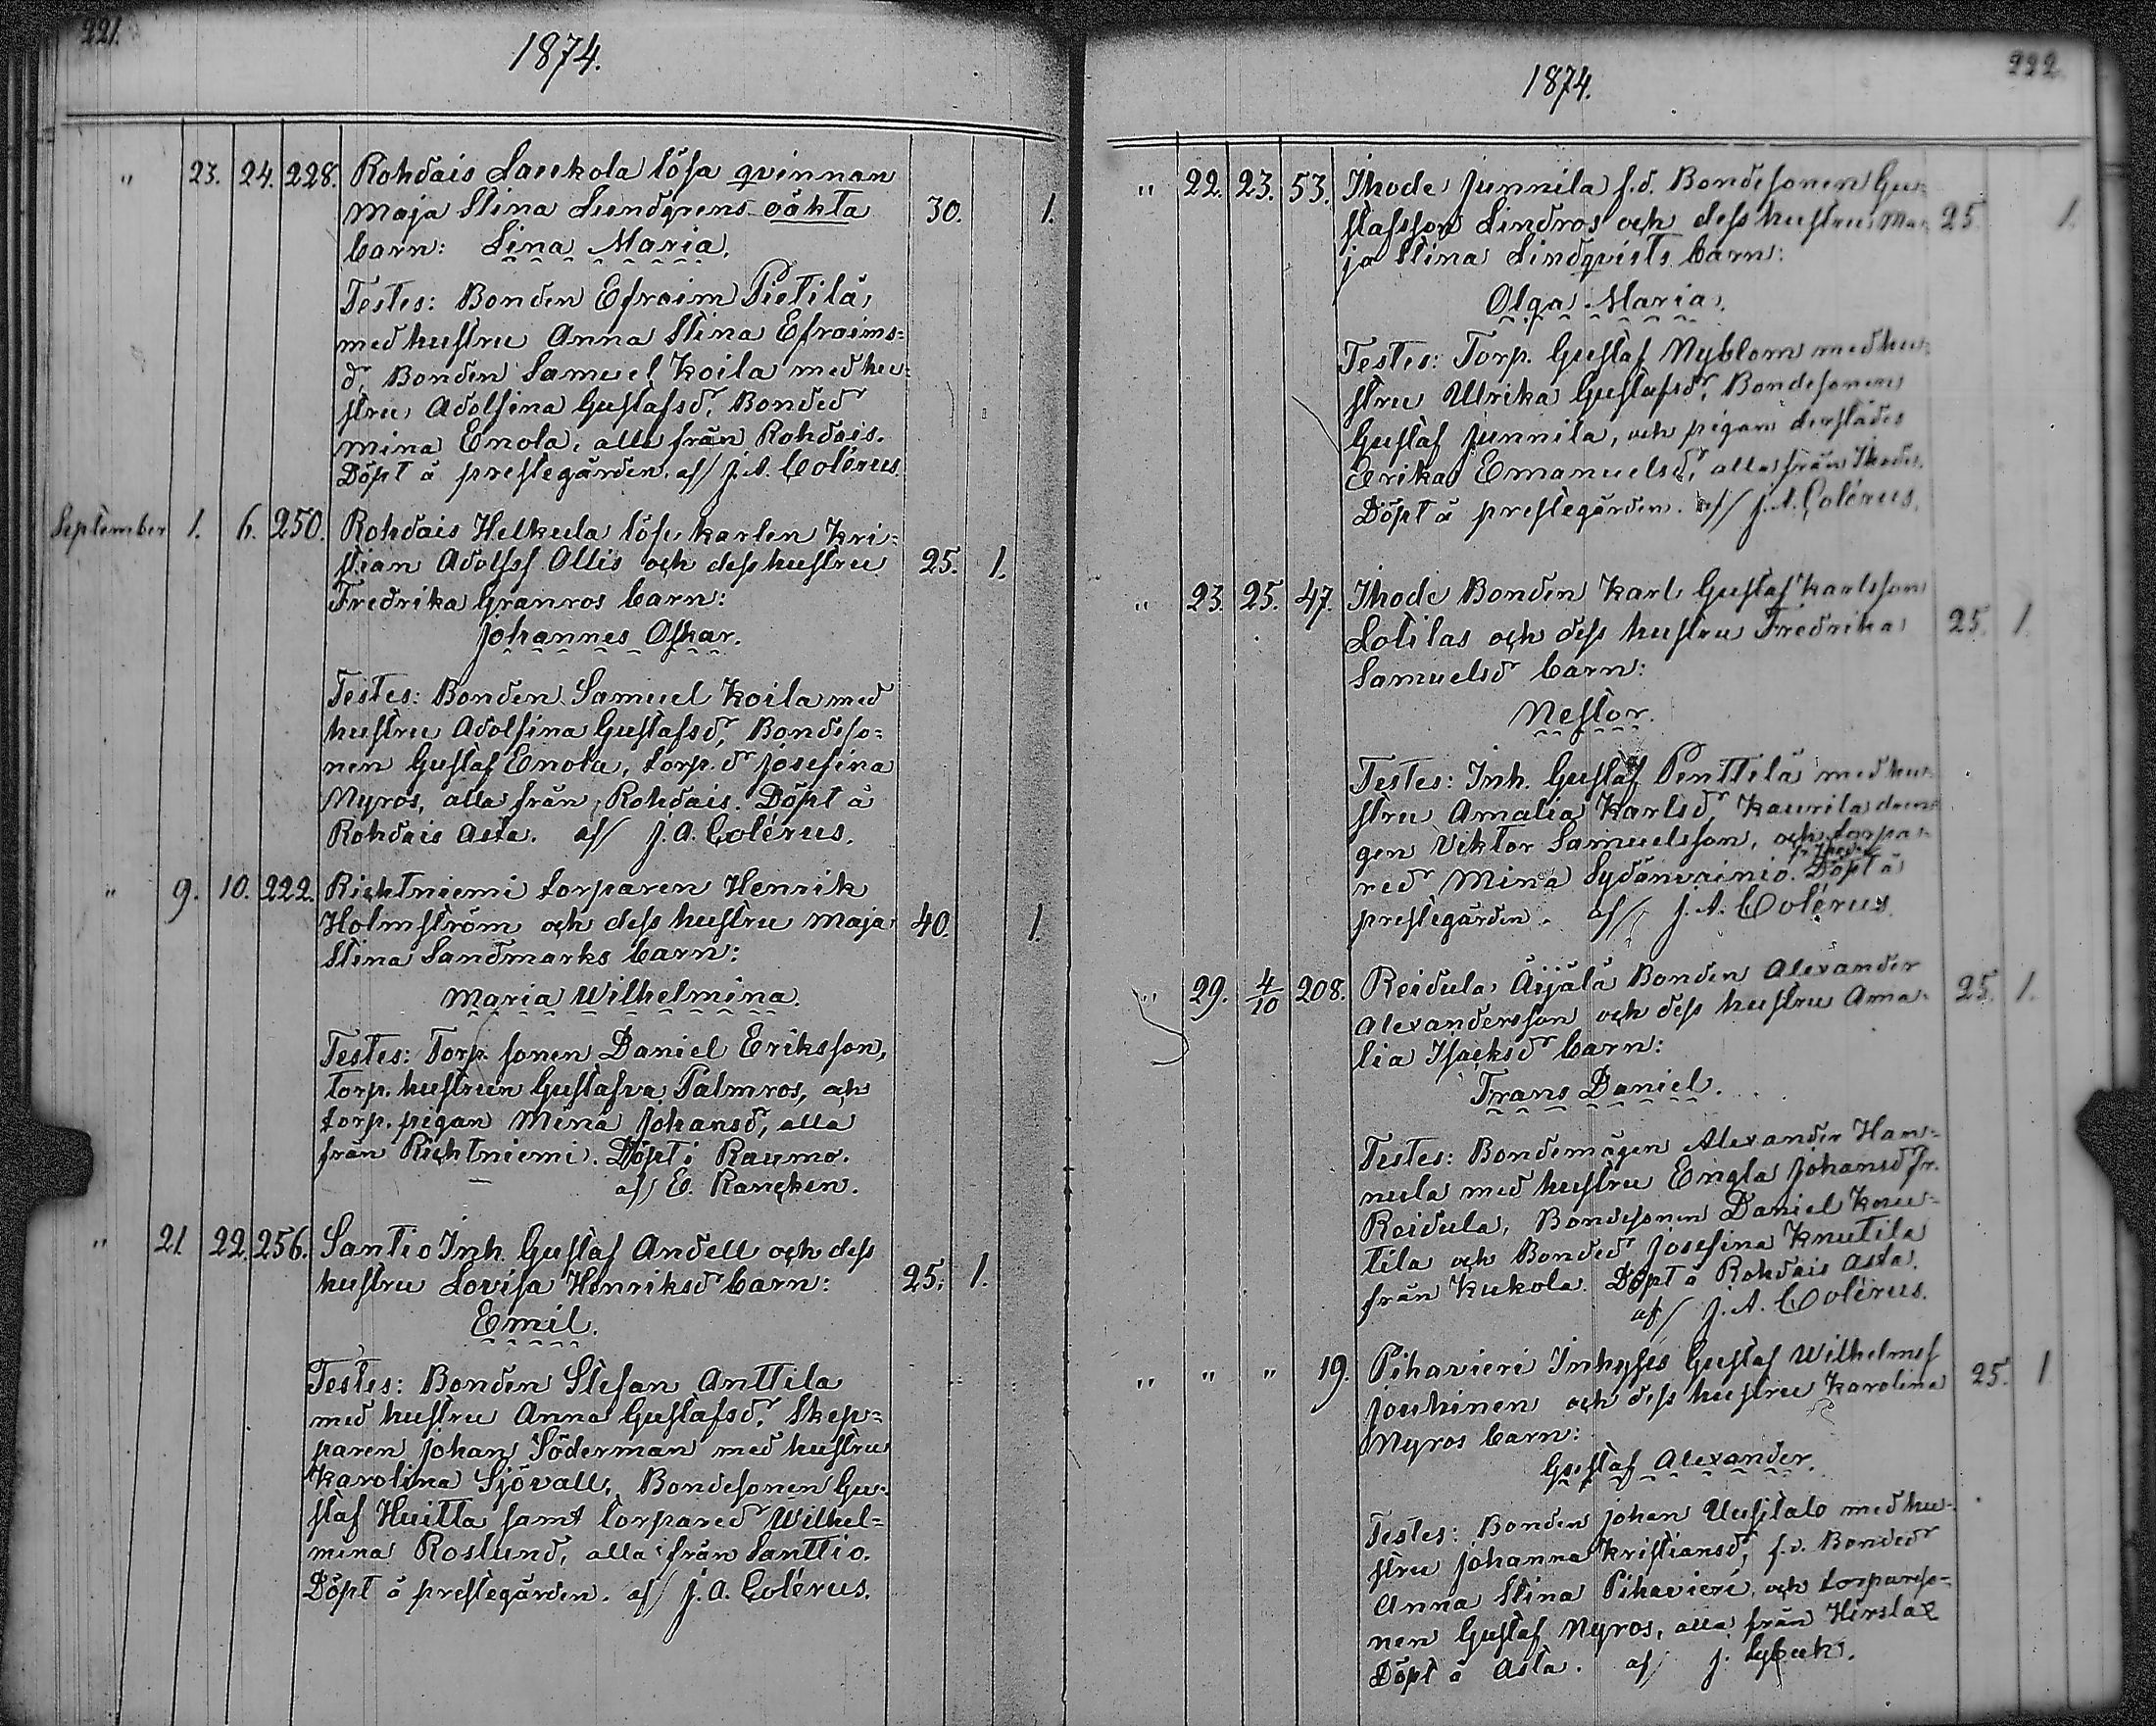 221.
1874.
" 23. 24. 228. Rohdais Laukola lösa qvinnan
Maja Stina Lundgrens oäkta 30. 1.
barn: Lina Maria.
Testes: Bonden Efraim Pietilä
med hustru Anna Stina Efraims=
dr, Bonden Samuel Koila med hu=
stru Adolfina Gustafsdr, Bondedr
Mina Enola, alla från Rohdais.
Döpt å prestegården. af/ J. A. Colérus.
September 1. 6. 250. Rohdais Helkula lösa karlen Kri=
stian Adolfsf Ollis och dess hustru 25. 1.
Fredrika Granros barn:
Johannes Oskar.
Testes: Bonden Samuel Koila med
hustru Adolfina Gustafsdr, Bondeso=
nen Gustaf Enola, torp. dr Josefina
Myros, alla från Rohdais. Döpt å
Rohdais Asta. af/ J. A. Colérus.
" 9. 10. 222. Richtniemi torparen Henrik
Holmström och dess hustru Maja 40. 1.
Stina Sandmarks barn:
Maria Wilhelmina.
Testes: Torp. sonen Daniel Eriksson,
torp. hustrun Gustafva Palmros, och
torp. pigan Mina Johansdr, alla
från Richtniemi. Döpt i Raumo.
af/ E. Rancken.
" 21. 22. 256. Santio Inh. Gustaf Andell och dess
hustru Lovisa Henriksdr barn: 25. 1.
Emil.
Testes: Bonden Stefan Anttila
med hustru Anna Gustafsdr, Skep=
paren Johan Söderman med hustru
Karolina Sjövall, Bondesonen Gu=
staf Huitta samt torparedr Wilhel=
mina Roslund, alla från Santtio.
Döpt å prestegården. af/ J. A. Colérus.
222
1874.
" 22. 23. 53. Ihode Junnila f.d. Bondesonen Gu=
stafsson Lindros och dess hustru Ma= 25. 1.
ja Stina Lindqvists barn:
Olga Maria.
Testes: Torp. Gustaf Nyblom med hu=
stru Ulrika Gustafsdr, Bondesonen
Gustaf Junnila, och pigan derstädes
Erika Emanuelsdr, alla från Ihode.
Döpt å prestegården. af/ J. A. Colérus.
" 23. 25. 47. Ihode Bonden Karl Gustaf Karlsson
Lotilas och dess hustru Fredrika 25. 1.
Samuelsdr barn:
Nestor.
Testes: Inh. Gustaf Penttilä med hu=
stru Amalia Karlsdr, Kaurila dren=
gen Viktor Samuelsson, och torpa=
redr Mina Sydänvainio fr. Ihode. Döpt å
prestegården. af/ J. A. Colérus.
" 29. 4/10 208. Reidula Äijälä Bonden Alexander
Alexandersson och dess hustru Ama= 25. 1.
lia Isacksdr barn:
Frans Daniel.
Testes: Bondemågen Alexander Han=
nula med hustru Engla Johansdr fr.
Reidula, Bondesonen Daniel Knu=
tila och Bondedr Josefina Knutila
från Kukola. Döpt å Rohdais Asta.
af/ J. A. Colérus.
" " " 19. Pihavieri Inhyses Gustaf Wilhelmsf
Jouhinen och dess hustru Karolina 25. 1
Myros barn:
Gustaf Alexander.
Testes: Bonden Johan Uusitalo med hu=
stru Johanna Kristiansdr, f.d. Bondedr
Anna Stina Pihavieri och torpareso=
nen Gustaf Myros, alla från Hirslax
Döpt å Asta. af/ J. Lybeck.